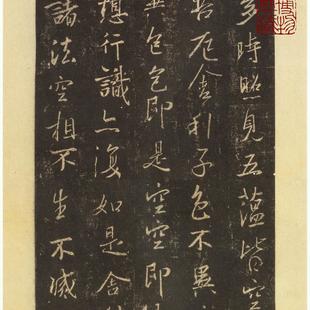 多時照見五蘊皆空
苦厄舍利子色不異
異色色即是空空即
想行識亦復如是舍
諸法空相不生不滅